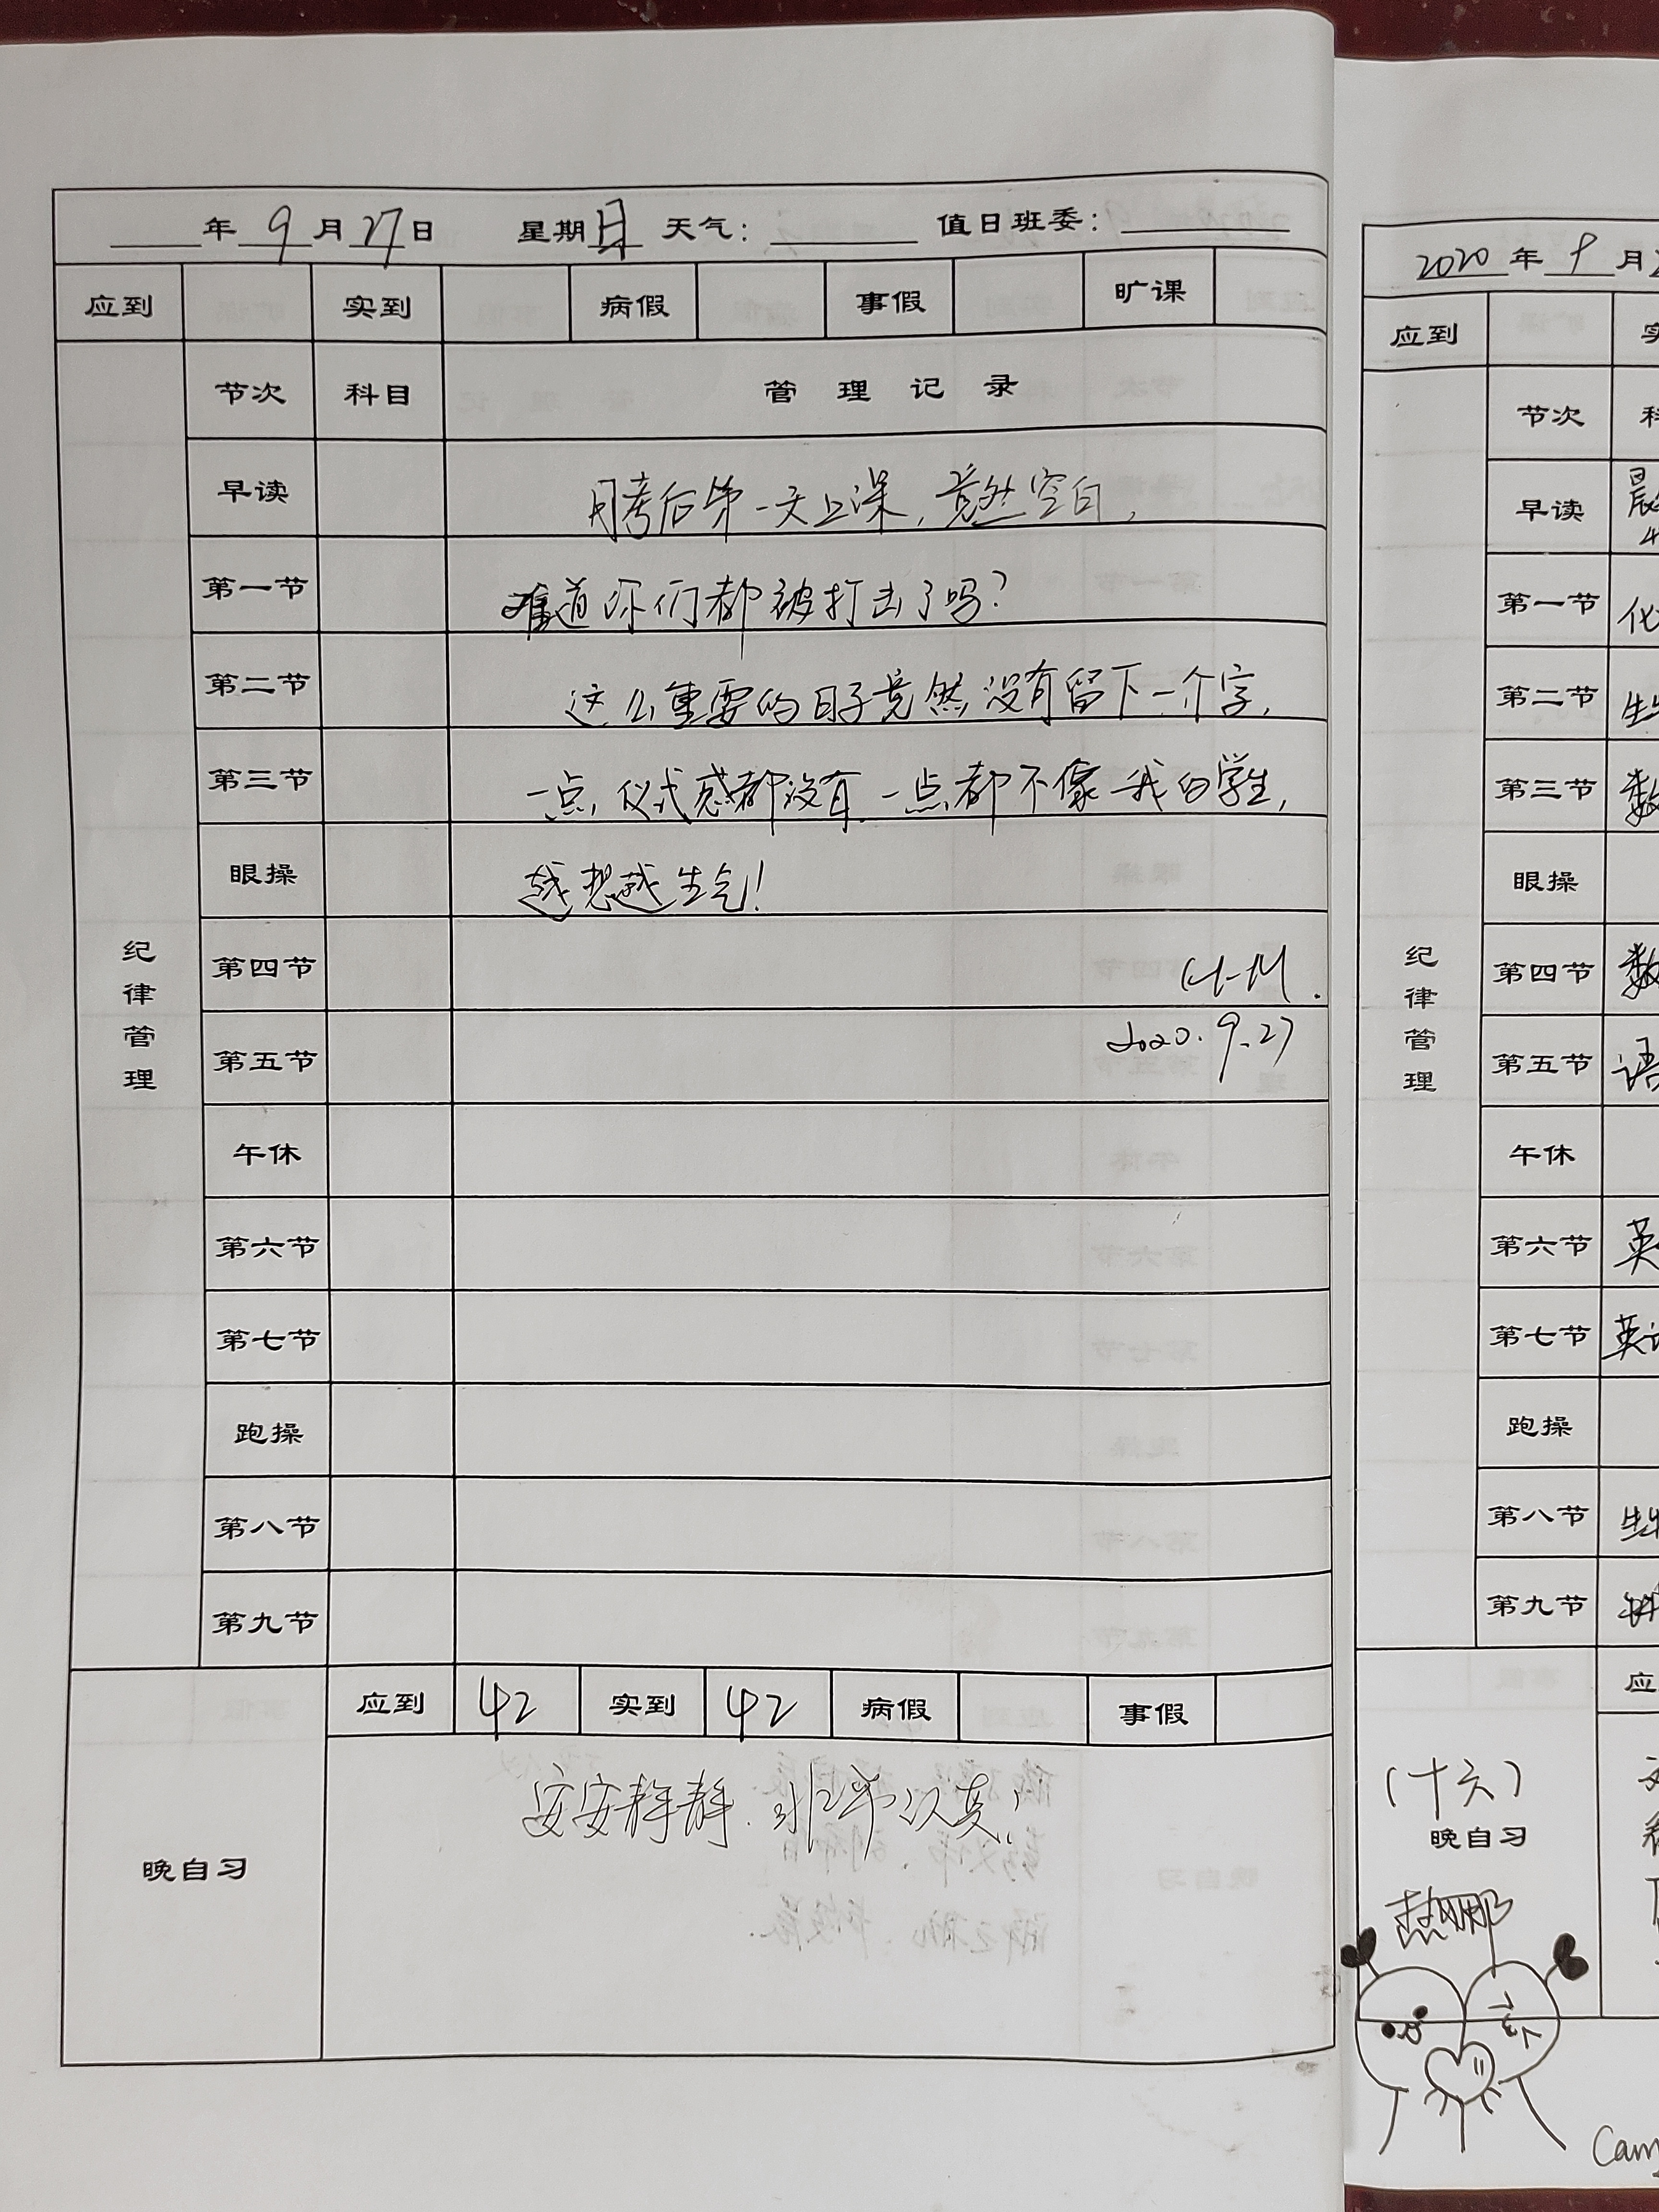 年 9 月 27 日 星期日 天气： 值日班委：
应到 实到 病假 事假 旷课
节次 科目 管理记录
早读 月考后第一天上课，竟然空白，
第一节 难道你们都被打击了吗？
第二节 这么重要的日子竟然没有留下一个字，
第三节 一点仪式感都没有，一点都不像我的学生，
眼操 越想越生气！
纪律管理
第四节
第五节 2020.9.27
午休
第六节
第七节
跑操
第八节
第九节
应到 42 实到 42 病假 事假
晚自习 安安静静，非常认真！
2020 年 9 月
应到
节次
早读
第一节 化
第二节 生
第三节 数
眼操
纪律管理
第四节 数
第五节 语
午休
第六节 英
第七节 英
跑操
第八节 生
第九节
应
（十六）
晚自习
热娜
Cam